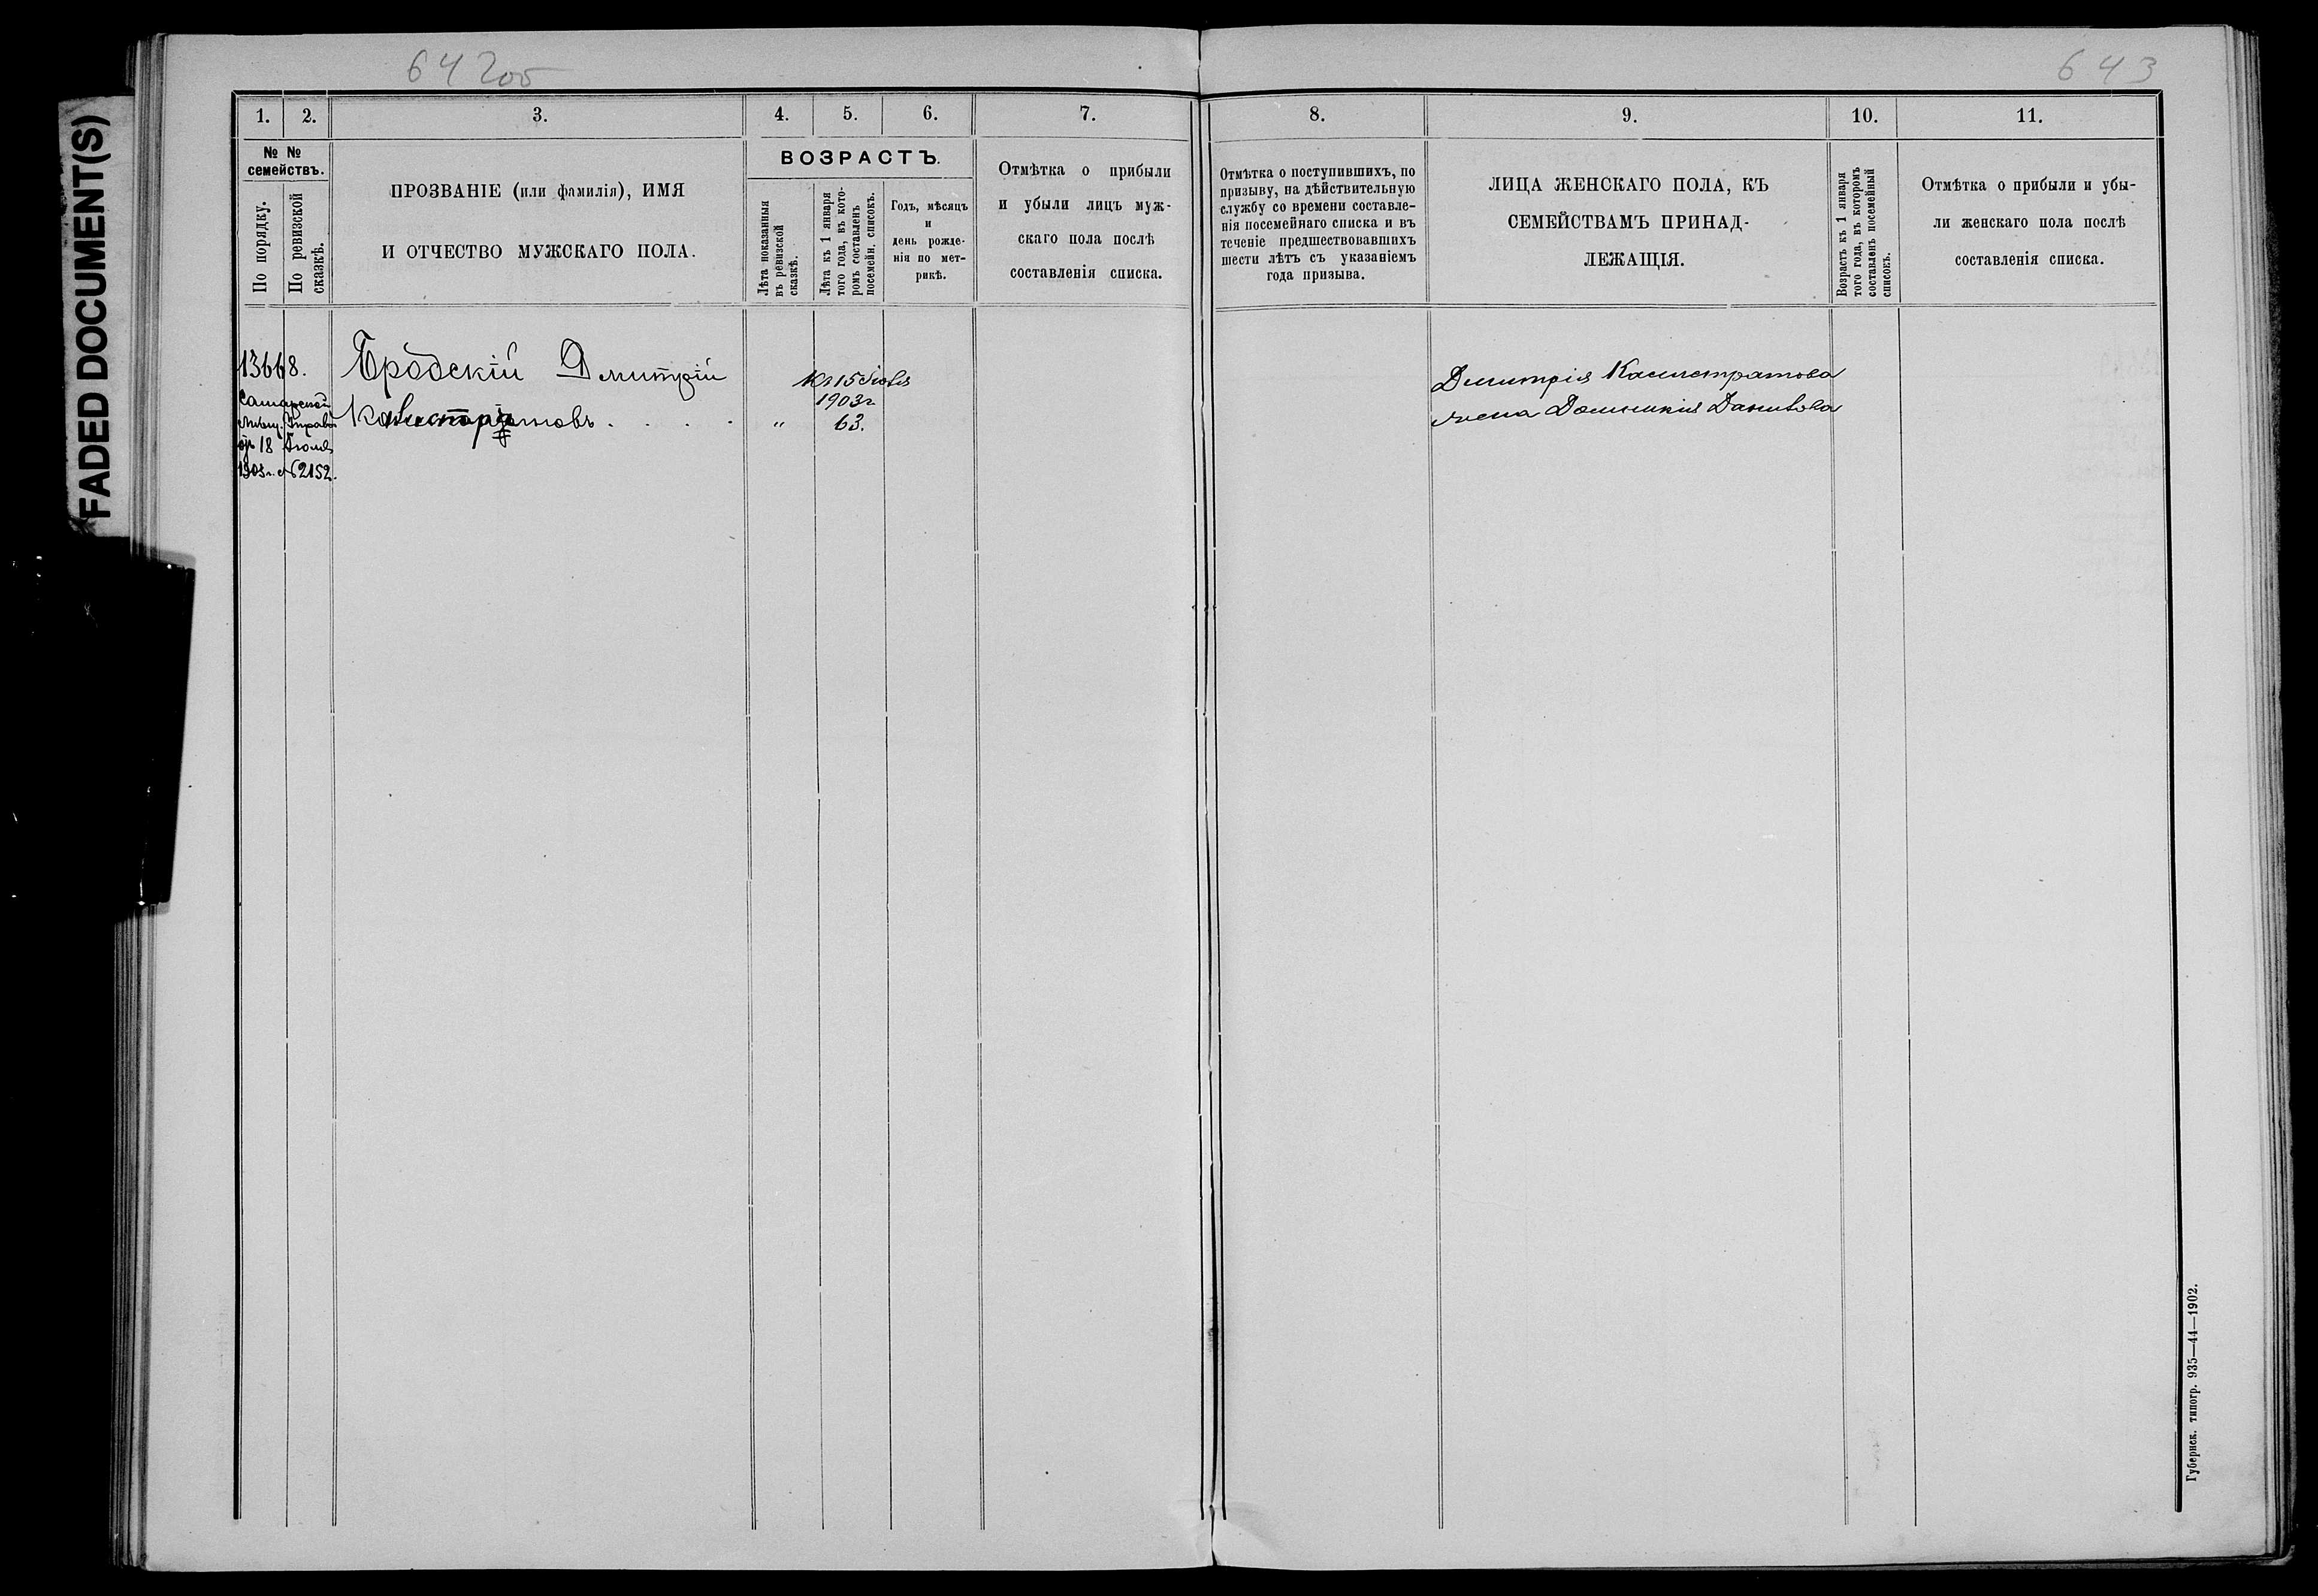 FADED DOCUMENT(S)
642об
643
1. 2. 3. 4. 5. 6. 7. 8. 9. 10. 11.
№ №
семействъ.
По порядку.
По ревизской
сказкѣ.
ПРОЗВАНІЕ (или фамилія), ИМЯ
И ОТЧЕСТВО МУЖСКАГО ПОЛА.
ВОЗРАСТЪ.
Лѣта показанныя
въ ревизской
сказкѣ.
Лѣта къ 1 января
того года, въ кото-
ромъ составленъ
посемейн. списокъ.
Годъ, мѣсяцъ
и
день рожде-
нія по мет-
рикѣ.
Отмѣтка о прибыли
и убыли лицъ муж-
скаго пола послѣ
составленія списка.
Отмѣтка о поступившихъ, по
призыву, на дѣйствительную
службу со времени составле-
нія посемейнаго списка и въ
теченіе предшествовавшихъ
шести лѣтъ съ указаніемъ
года призыва.
ЛИЦА ЖЕНСКАГО ПОЛА, КЪ
СЕМЕЙСТВАМЪ ПРИНАД-
ЛЕЖАЩІЯ.
Возрастъ къ 1 января
того года, въ которомъ
составленъ посемейный
списокъ.
Отмѣтка о прибыли и убы-
ли женскаго пола послѣ
составленія списка.
13668.
Самарской
Мѣщ. Управы
18 Іюля
1903г. №2152.
Бродскій Дмитрій
Калистратовъ . . . .
"
Къ 15 Іюля
1903г
63.
Дмитрія Калистратова
жена Домникія Данилова
Губернск. типогр. 935—44—1902.